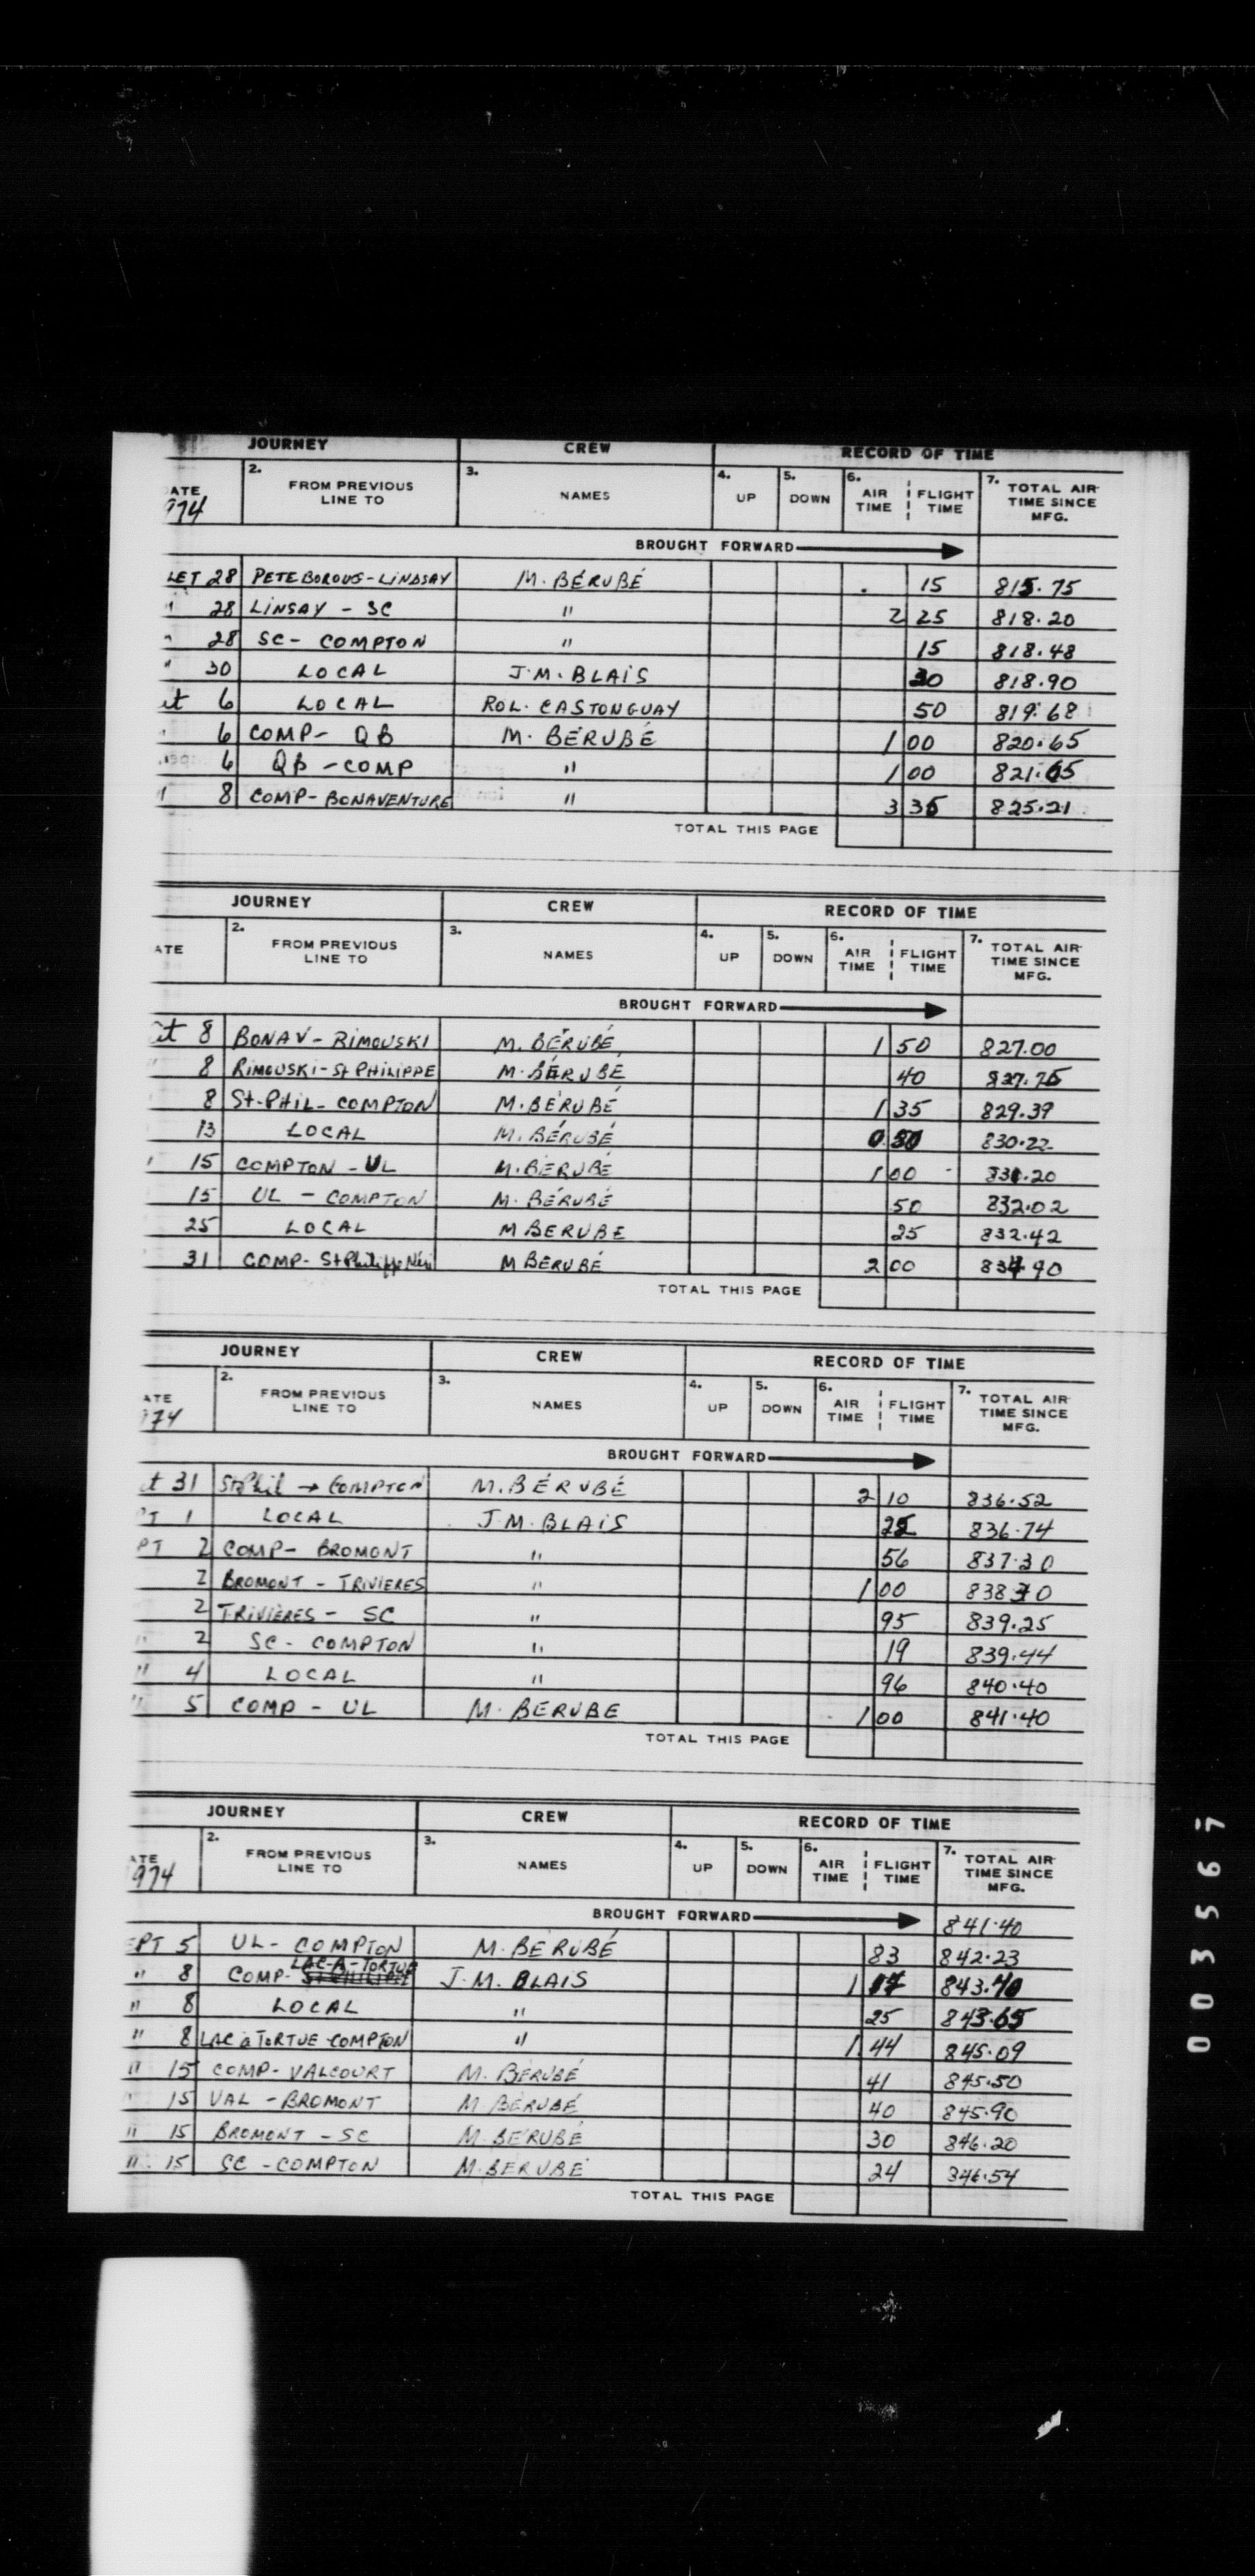 JOURNEY CREW RECORD OF TIME
ATE 974 2. FROM PREVIOUS LINE TO 3. NAMES 4. UP 5. DOWN 6. AIR TIME FLIGHT TIME 7. TOTAL AIR TIME SINCE MFG.
BROUGHT FORWARD
LET 28 PETEBOROUG-LINDSAY M. BÉRUBÉ . 15 815.75
" 28 LINSAY - SC " 2 25 818.20
" 28 SC - COMPTON " 15 818.48
" 30 LOCAL J.M. BLAIS 30 818.90
ut 6 LOCAL ROL. CASTONGUAY 50 819.68
" 6 COMP - QB M. BÉRUBÉ 1 00 820.65
6 QB - COMP " 1 00 821.65
" 8 COMP - BONAVENTURE " 3 35 825.21
TOTAL THIS PAGE
JOURNEY CREW RECORD OF TIME
ATE 2. FROM PREVIOUS LINE TO 3. NAMES 4. UP 5. DOWN 6. AIR TIME FLIGHT TIME 7. TOTAL AIR TIME SINCE MFG.
BROUGHT FORWARD
ut 8 BONAV - RIMOUSKI M. BÉRUBÉ 1 50 827.00
" 8 RIMOUSKI - St PHILIPPE M. BÉRUBÉ 40 827.75
8 St-PHIL - COMPTON M. BÉRUBÉ 1 35 829.39
13 LOCAL M. BÉRUBÉ 0 50 830.22
15 COMPTON - UL M. BERUBÉ 1 00 831.20
15 UL - COMPTON M. BÉRUBÉ 50 832.02
25 LOCAL M BERUBE 25 832.42
31 COMP - St Philippe Néri M BERUBÉ 2 00 834.90
TOTAL THIS PAGE
JOURNEY CREW RECORD OF TIME
ATE 974 2. FROM PREVIOUS LINE TO 3. NAMES 4. UP 5. DOWN 6. AIR TIME FLIGHT TIME 7. TOTAL AIR TIME SINCE MFG.
BROUGHT FORWARD
ut 31 St Phil → COMPTON M. BÉRUBÉ 2 10 836.52
PT 1 LOCAL J.M. BLAIS 22 836.74
PT 2 COMP - BROMONT " 56 837.30
2 BROMONT - TRIVIERES " 1 00 838 30
2 TRIVIÈRES - SC " 95 839.25
" 2 SC - COMPTON " 19 839.44
" 4 LOCAL " 96 840.40
" 5 COMP - UL M. BERUBE 1 00 841.40
TOTAL THIS PAGE
JOURNEY CREW RECORD OF TIME
ATE 974 2. FROM PREVIOUS LINE TO 3. NAMES 4. UP 5. DOWN 6. AIR TIME FLIGHT TIME 7. TOTAL AIR TIME SINCE MFG.
BROUGHT FORWARD 841.40
EPT 5 UL - COMPTON M. BERUBÉ 83 842.23
" 8 COMP - LAC-A-TORTUE J.M. BLAIS 1 17 843.40
" 8 LOCAL " 25 843.65
" 8 LAC à TORTUE - COMPTON " 1.44 845.09
" 15 COMP - VALCOURT M. BERUBÉ 41 845.50
" 15 VAL - BROMONT M. BERUBÉ 40 845.90
" 15 BROMONT - SC M. BERUBÉ 30 846.20
" 15 SC - COMPTON M. BERUBÉ 24 846.54
TOTAL THIS PAGE
003567